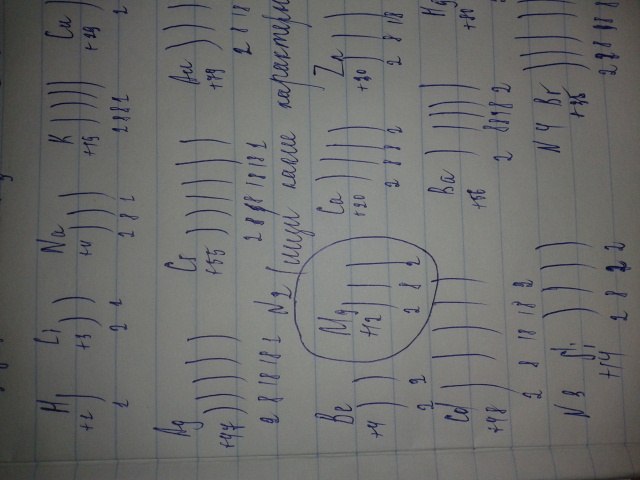 H Li Na K Cu
+1 ) +3 )) +11 ))) +19 )))) +29
1 2 1 2 8 1 2 8 8 1 2
Ag Cs Au
+47 ))))) +55 )))))) +79
2 8 18 18 1 2 8 18 1 2 8 18
N2 какие характерн
Be Mg Ca Zn
+4 )) +12 ))) +20 )))) +30
2 2 2 8 2 2 8 8 2 2 8 18
Cd Ba Hg
+48 ))))) +56 )))))) +80
2 8 18 18 2 2 8 18 8 2
N3 Si N4 Br
+14 )))) +35
2 8 2 2 2 8 8